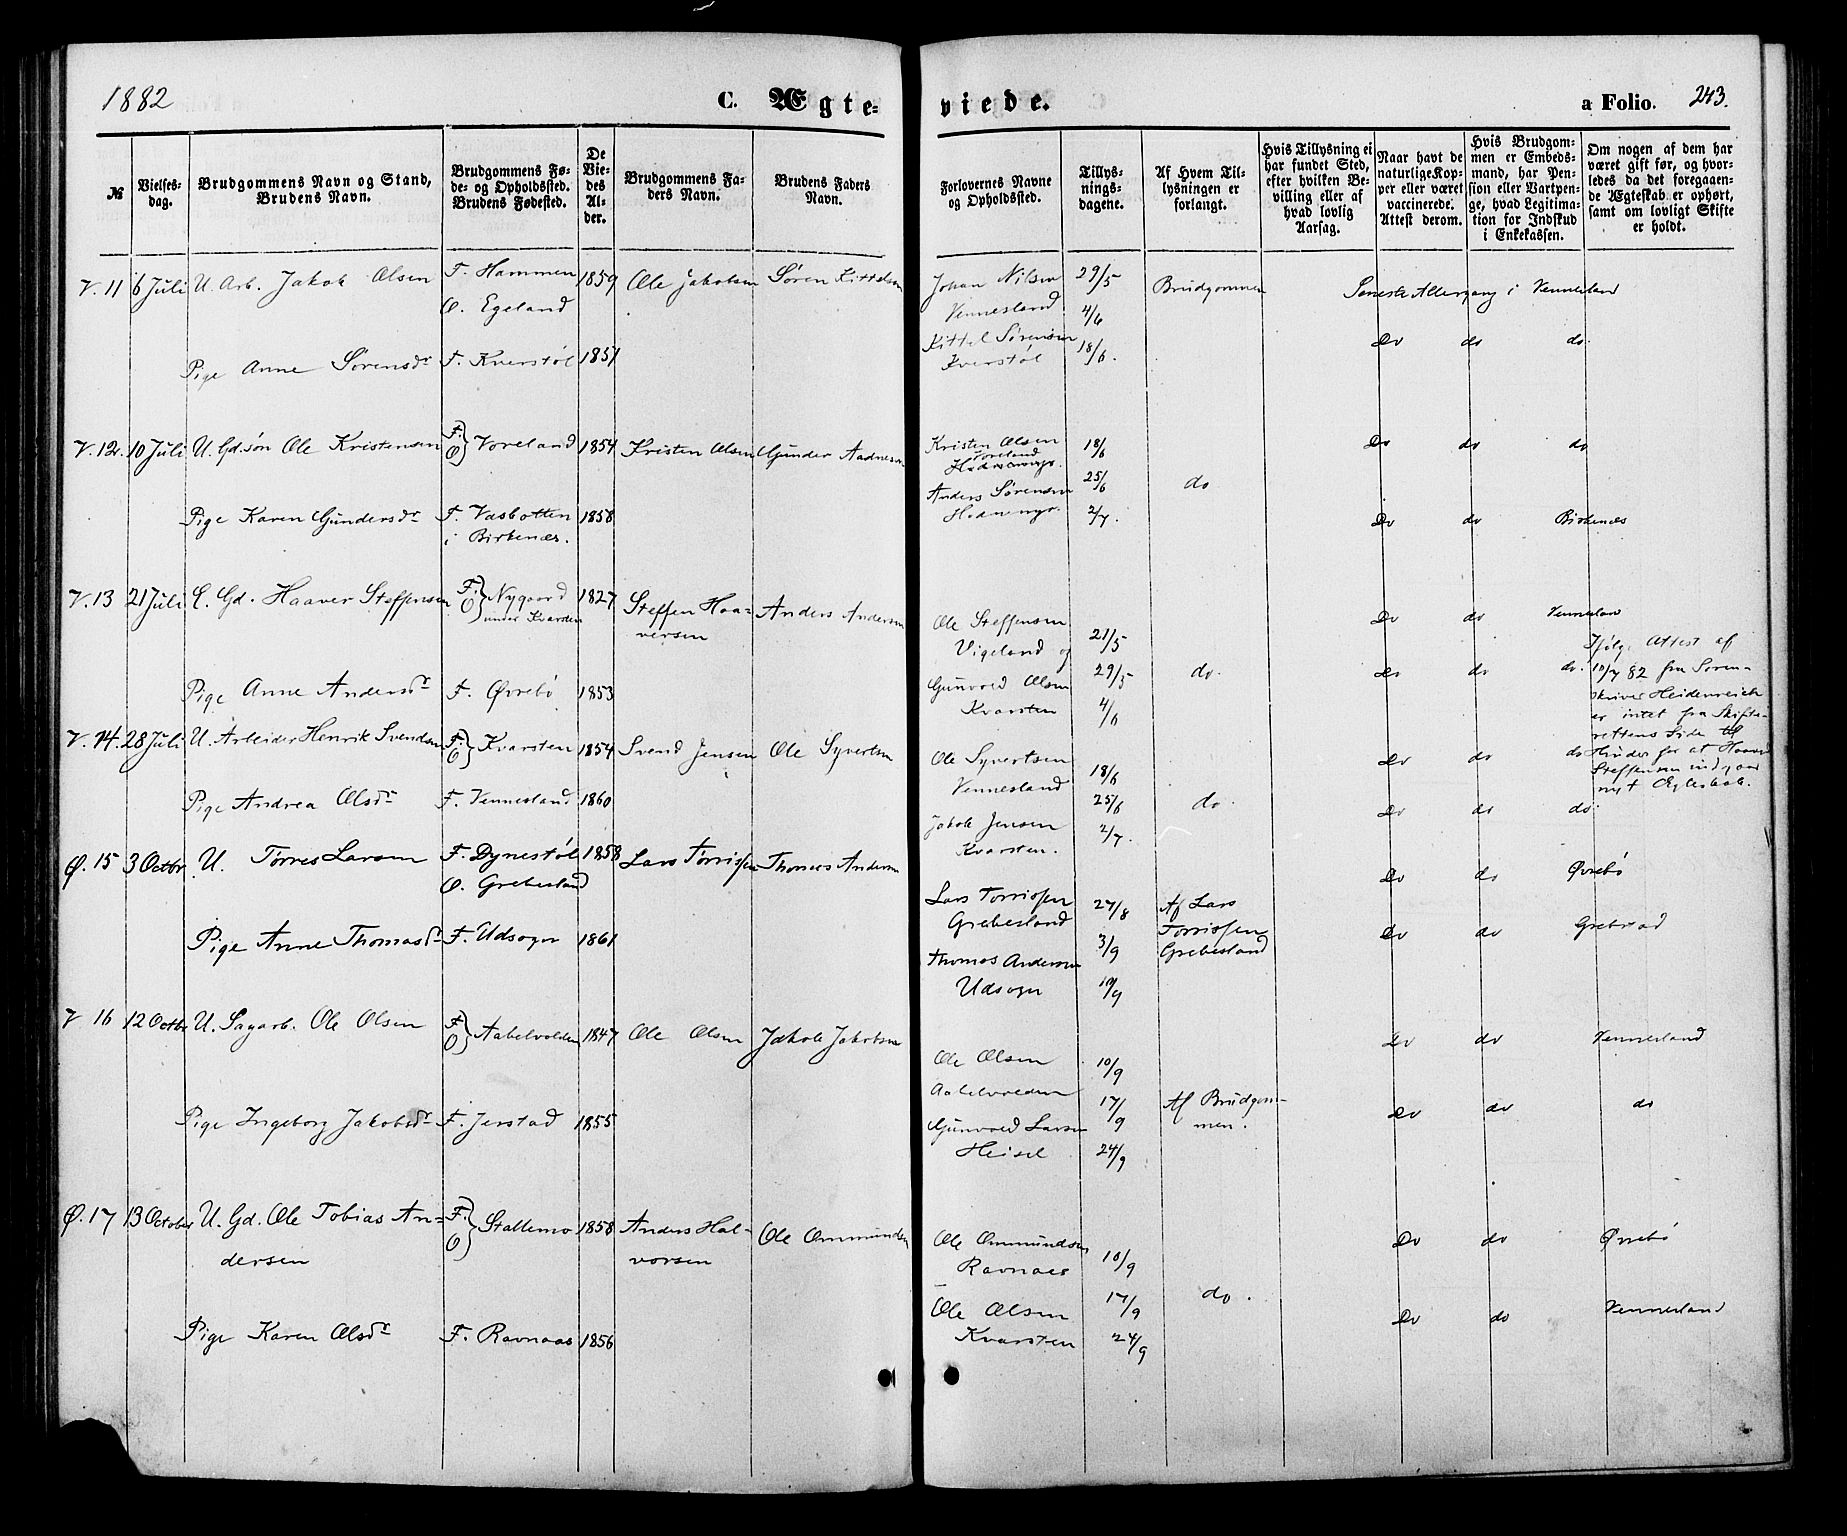 1882
C. Ægte-
viede.
a Folio. 243.
№
Vielses-
dag.
Brudgommens Navn og Stand,
Brudens Navn.
Brudgommens Fø-
de- og Opholdssted.
Brudens Fødested.
De
Vie-
des
Al-
der.
Brudgommens Fa-
ders Navn.
Brudens Faders
Navn.
Forlovernes Navne
og Opholdssted.
Tillys-
nings-
dagene.
Af Hvem Til-
lysningen er
forlangt.
Hvis Tillysning ei
har fundet Sted,
efter hvilken Be-
villing eller af
hvad lovlig
Aarsag.
Naar havt de
naturlige Kop-
per eller været
vaccinerede.
Attest derom.
Hvis Brudgom-
men er Embeds-
mand, har Pen-
sion eller Vartpen-
ge, hvad Legitima-
tion for Indskud
i Enkekassen.
Om nogen af dem har
været gift før, og hvor-
ledes da det foregaaen-
de Ægteskab er ophørt,
samt om lovligt Skifte
er holdt.
V. 11 6 Juli U. Arb. Jakob Olsen F. Hammen 1859 Ole Jakobsen Søren Kittelsen
O. Egeland
Pige Anne Sørensdr F. Kverstøl 1851
Johan Nilsen 29/5 Brudgommen Seneste Altergang i Vennesland
Vennesland 4/6
Kittel Sørensen 18/6. do do do.
Kverstøl
V. 12. 10 Juli U. Gd.søn Ole Kristensen F. O } Voreland 1854 Kristen Olsen Gunder Aadnesen
Pige Karen Gundersdr F. Vasbotten 1858
i Birkenæs.
Kristen Olsen 18/6 do do do
Voreland
25/6 do
Anders Sørensen
2/7. do do Birkenæs
V. 13 21 Juli E. Gd. Haaver Steffensen F. O } Nygaard 1827 Steffen Haa- Anders Andersen
under Kvarsten versen
Pige Anne Andersdr F. Øvrebø 1853
Ole Steffensen 21/5 do do Vennesland
Vigeland og
Gunvold Olsen 29/5 do. do do do.
Kvarsten 4/6
Ifølge Attest af
10/7 82 fra Soren-
skriver Heidenreich
er intet fra Skifte-
rettens Side til
Hinder for at Haaver
Steffensen indgaar
nyt Ægteskab.
V. 14. 28 Juli U. Arbeider Henrik Svendsen F. O } Kvarsten 1854 Svend Jensen Ole Syvertsen
Pige Andrea Olsdr F. Vennesland 1860
Ole Syvertsen 18/6 do do do
Vennesland 25/6 do.
Jakob Jensen 2/7. do do do.
Kvarsten.
Ø. 15 3 Octbr U. Torres Larsen F. Dynestøl 1858 Lars Torrissen Thomas Andersen
O. Grebesland
Pige Anne Thomasdr F. Udsogn 1861
Lars Torrissen 27/8 Af Lars do do Øvrebø
Grebesland Torrissen
Thomas Andersen 3/9 Grebesland do do
Udsogn 10/9
V 16 12 Octbr U. Sagarb. Ole Olsen F. O } Aabelvolden 1847 Ole Olsen Jakob Jakobsen
Pige Ingeborg Jakobsdr F. Jerstad 1855
Ole Olsen 10/9 do do Vennesland
Aabelvolden
Gunvold Larsen 17/9 Af Brudgom- do do do
Heisel 24/9 men.
Ø. 17 13 October U. Gd. Ole Tobias An- F. O } Stallemo 1858 Anders Hal- Ole Ommundsen
dersen vorsen
Pige Karen Olsdr F. Ravnaas 1856
Ole Ommundsen 10/9 do do Øvrebø
Ravnaas
Ole Olsen 17/9 do. do do Vennesland
Kvarsten 24/9